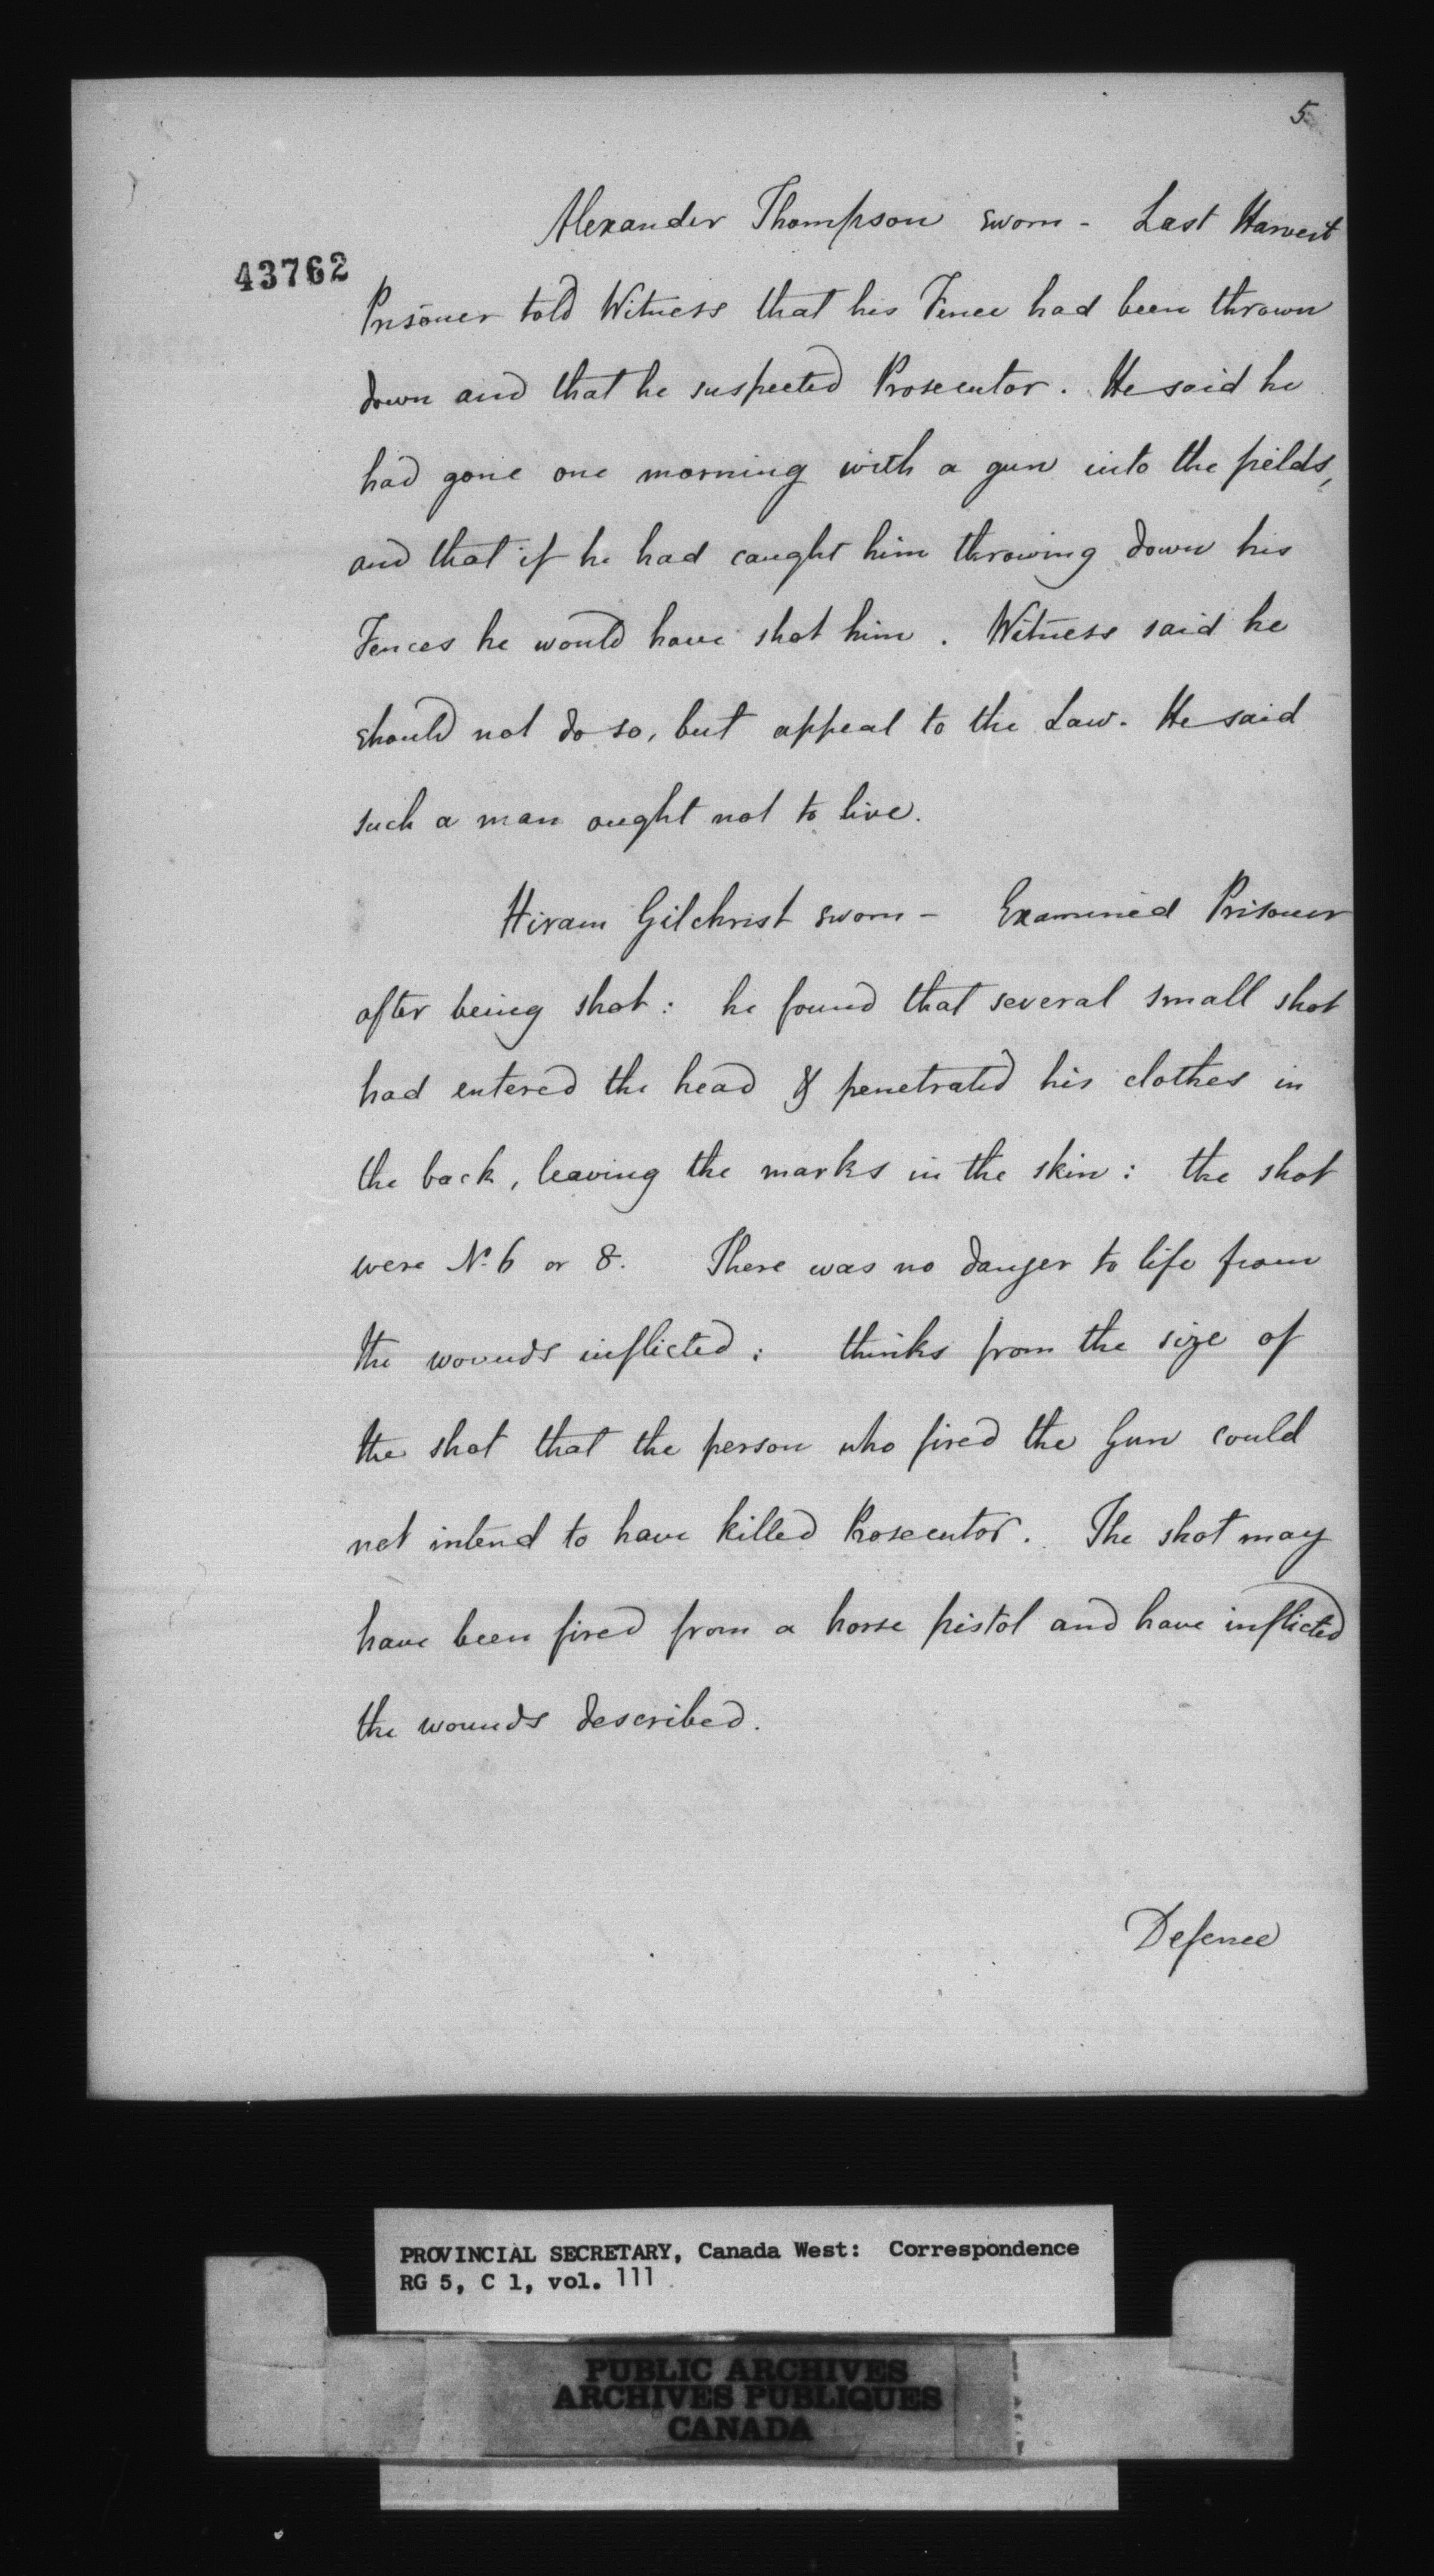 5
Alexander Thompson sworn - Last Harvest
43762
Prisoner told Witness that his Fence had been thrown
down and that he suspected Prosecutor. He said he
had gone one morning with a gun into the fields,
and that if he had caught him throwing down his
Fences he would have shot him. Witness said he
should not do so, but appeal to the Law. He said
such a man ought not to live.
Hiram Gilchrist sworn - Examined Prisoner
after being shot: he found that several small shot
had entered the head & penetrated his clothes in
the back, leaving the marks in the skin: the shot
were No. 6 or 8. There was no danger to life from
the wounds inflicted: thinks from the size of
the shot that the person who fired the Gun could
not intend to have killed Prosecutor. The shot may
have been fired from a horse pistol and have inflicted
the wounds described.
Defence
PROVINCIAL SECRETARY, Canada West: Correspondence
RG 5, C 1, vol. 111
PUBLIC ARCHIVES
ARCHIVES PUBLIQUES
CANADA